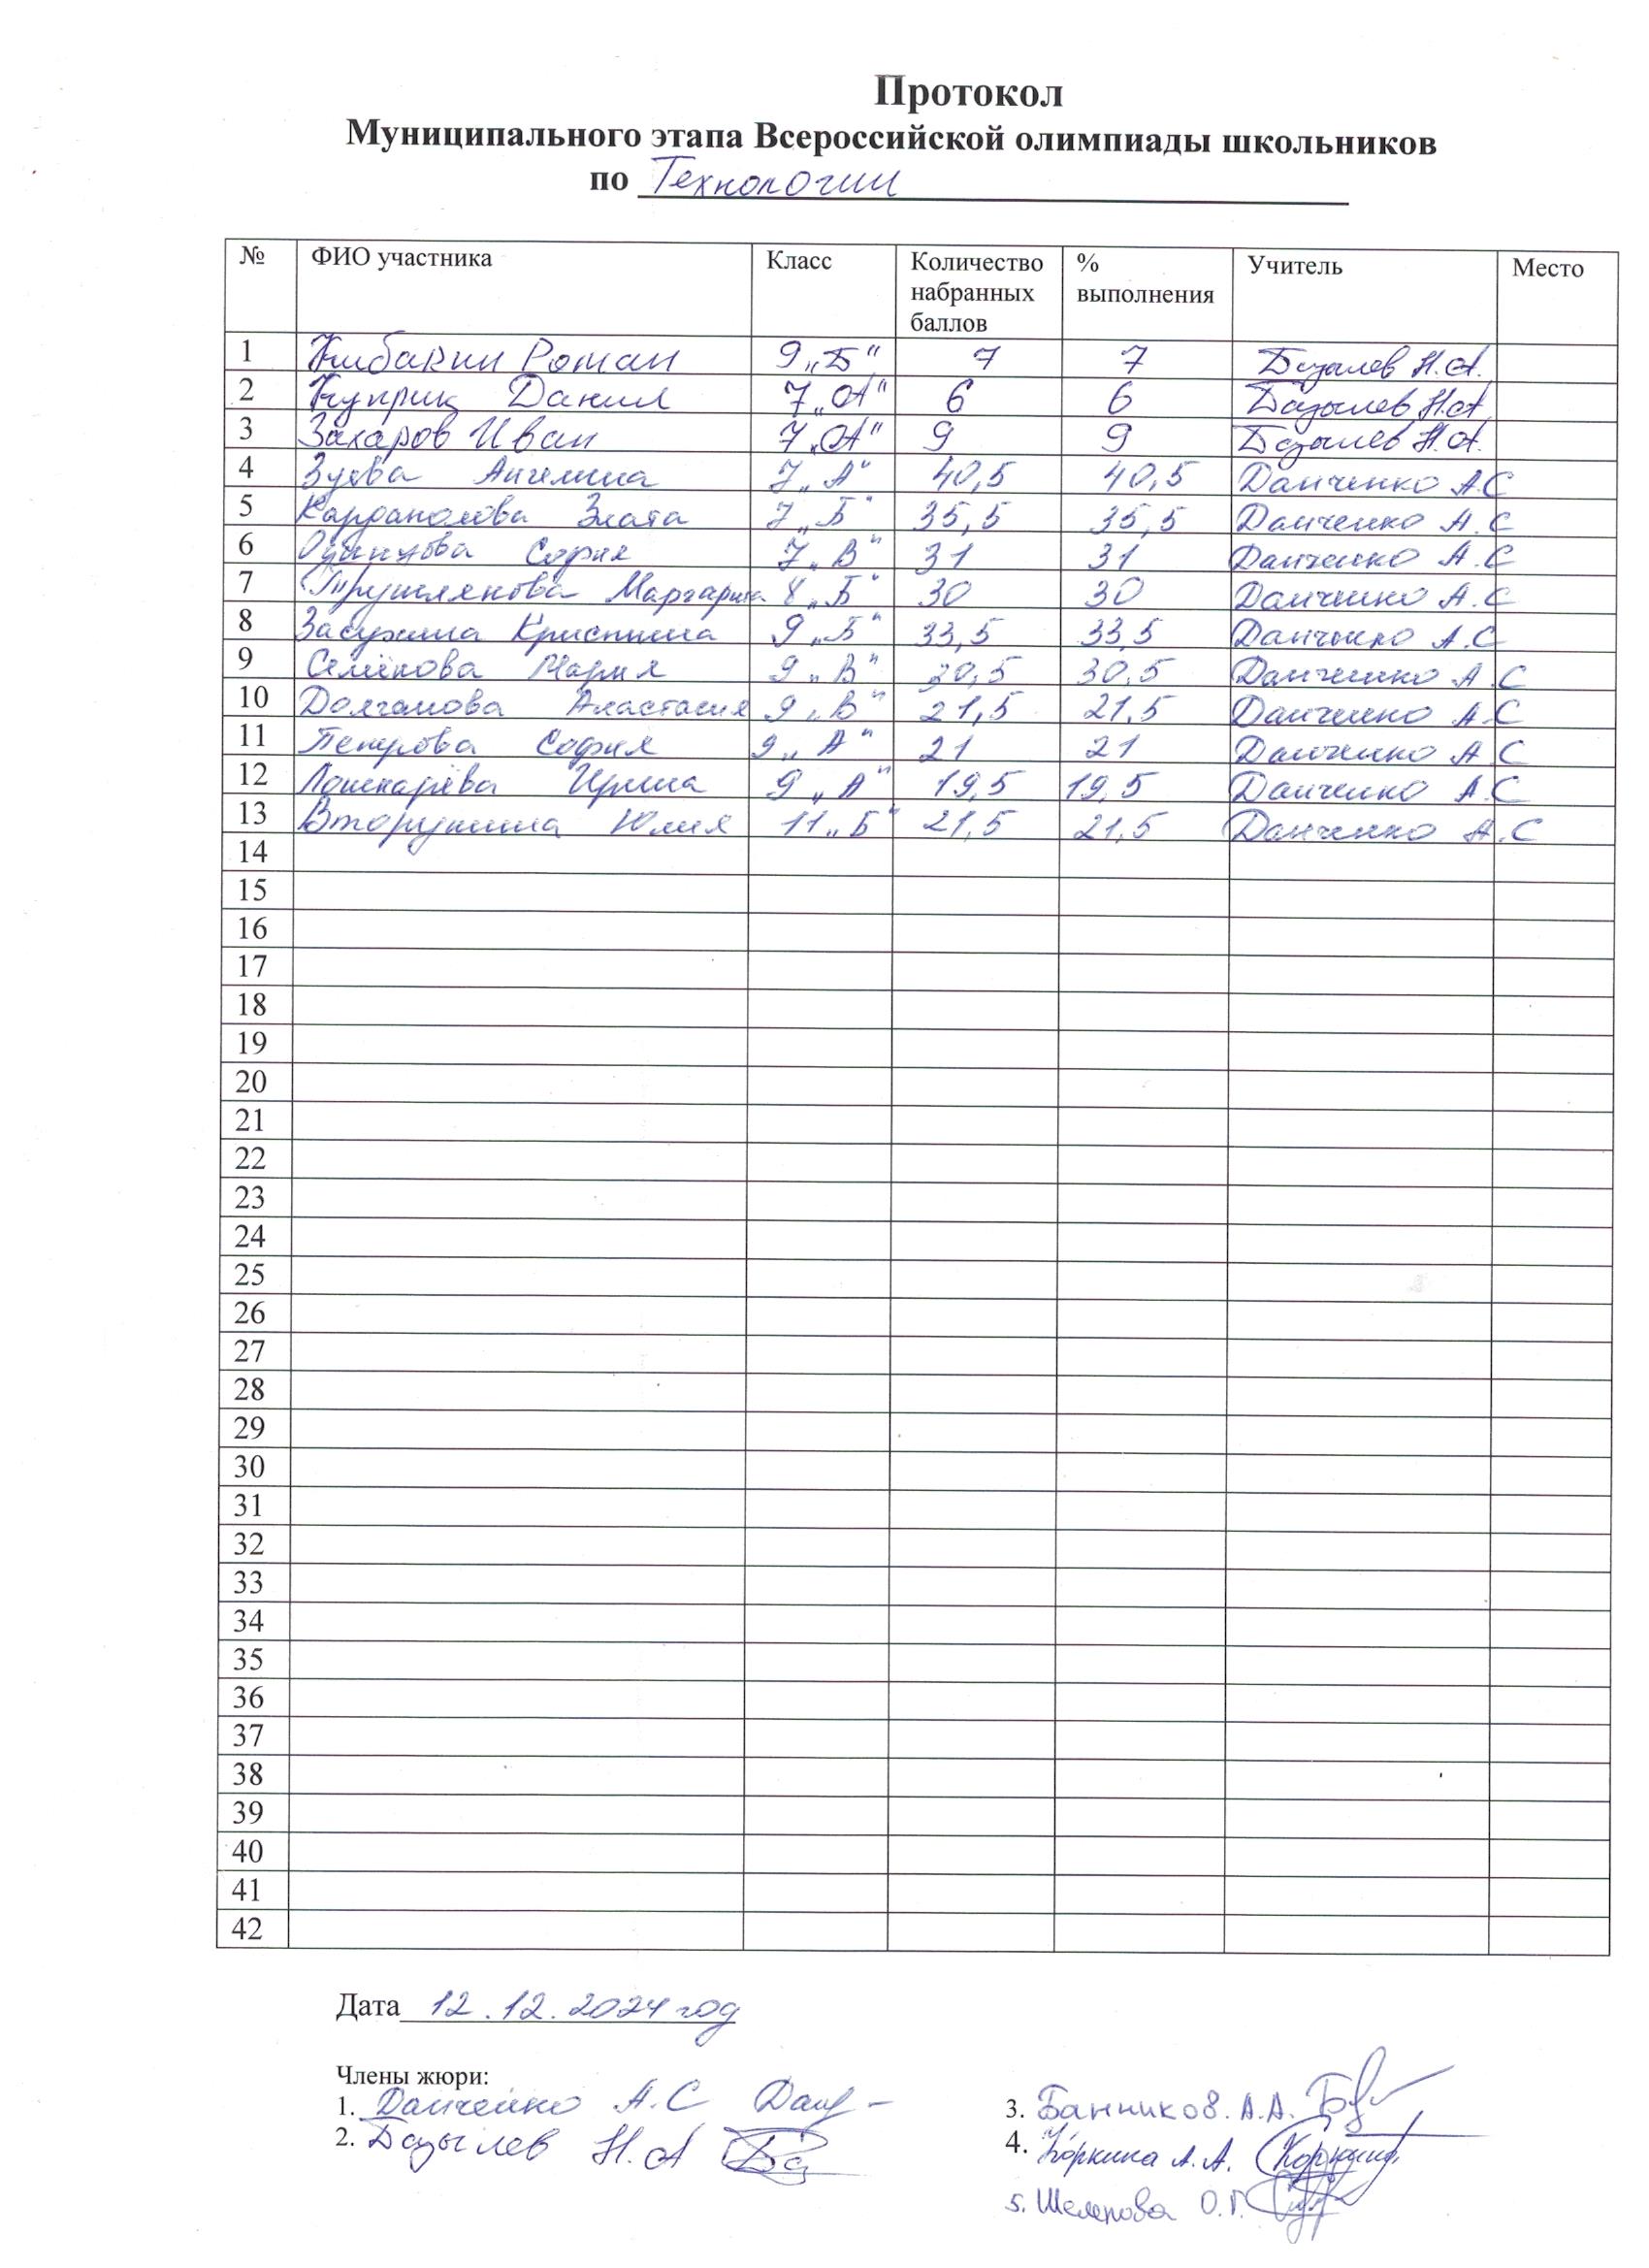 Протокол
Муниципального этапа Всероссийской олимпиады школьников
по Технологии
№ ФИО участника Класс Количество набранных баллов % выполнения Учитель Место
1 Кибакин Роман 9 „Б“ 7 7 Базылев Н.А.
2 Куприк Данил 7 „А“ 6 6 Базылев Н.А
3 Захаров Иван 7 „А“ 9 9 Базылев Н.А.
4 Зуева Ангелина 7 „А“ 40,5 40,5 Данченко А.С
5 Карраполова Злата 7 „Б“ 35,5 35,5 Данченко А.С
6 Одинцова София 7 „В“ 31 31 Данченко А.С
7 Маргарита 8 „Б“ 30 30 Данченко А.С
8 Засухина Кристина 9 „Б“ 33,5 33,5 Данченко А.С
9 Семёнова Мария 9 „В“ 30,5 30,5 Данченко А.С
10 Долганова Анастасия 9 „В“ 21,5 21,5 Данченко А.С
11 Петрова София 9 „А“ 21 21 Данченко А.С
12 Лошкарёва Ирина 9 „А“ 19,5 19,5 Данченко А.С
13 Вторушина Юлия 11 „Б“ 21,5 21,5 Данченко А.С
14
15
16
17
18
19
20
21
22
23
24
25
26
27
28
29
30
31
32
33
34
35
36
37
38
39
40
41
42
Дата 12.12.2024 год
Члены жюри:
1. Данченко А.С
2. Базылев Н.А
3. Банников. А.А.
4. Коркина А.А.
5. Шелепова О.Г.